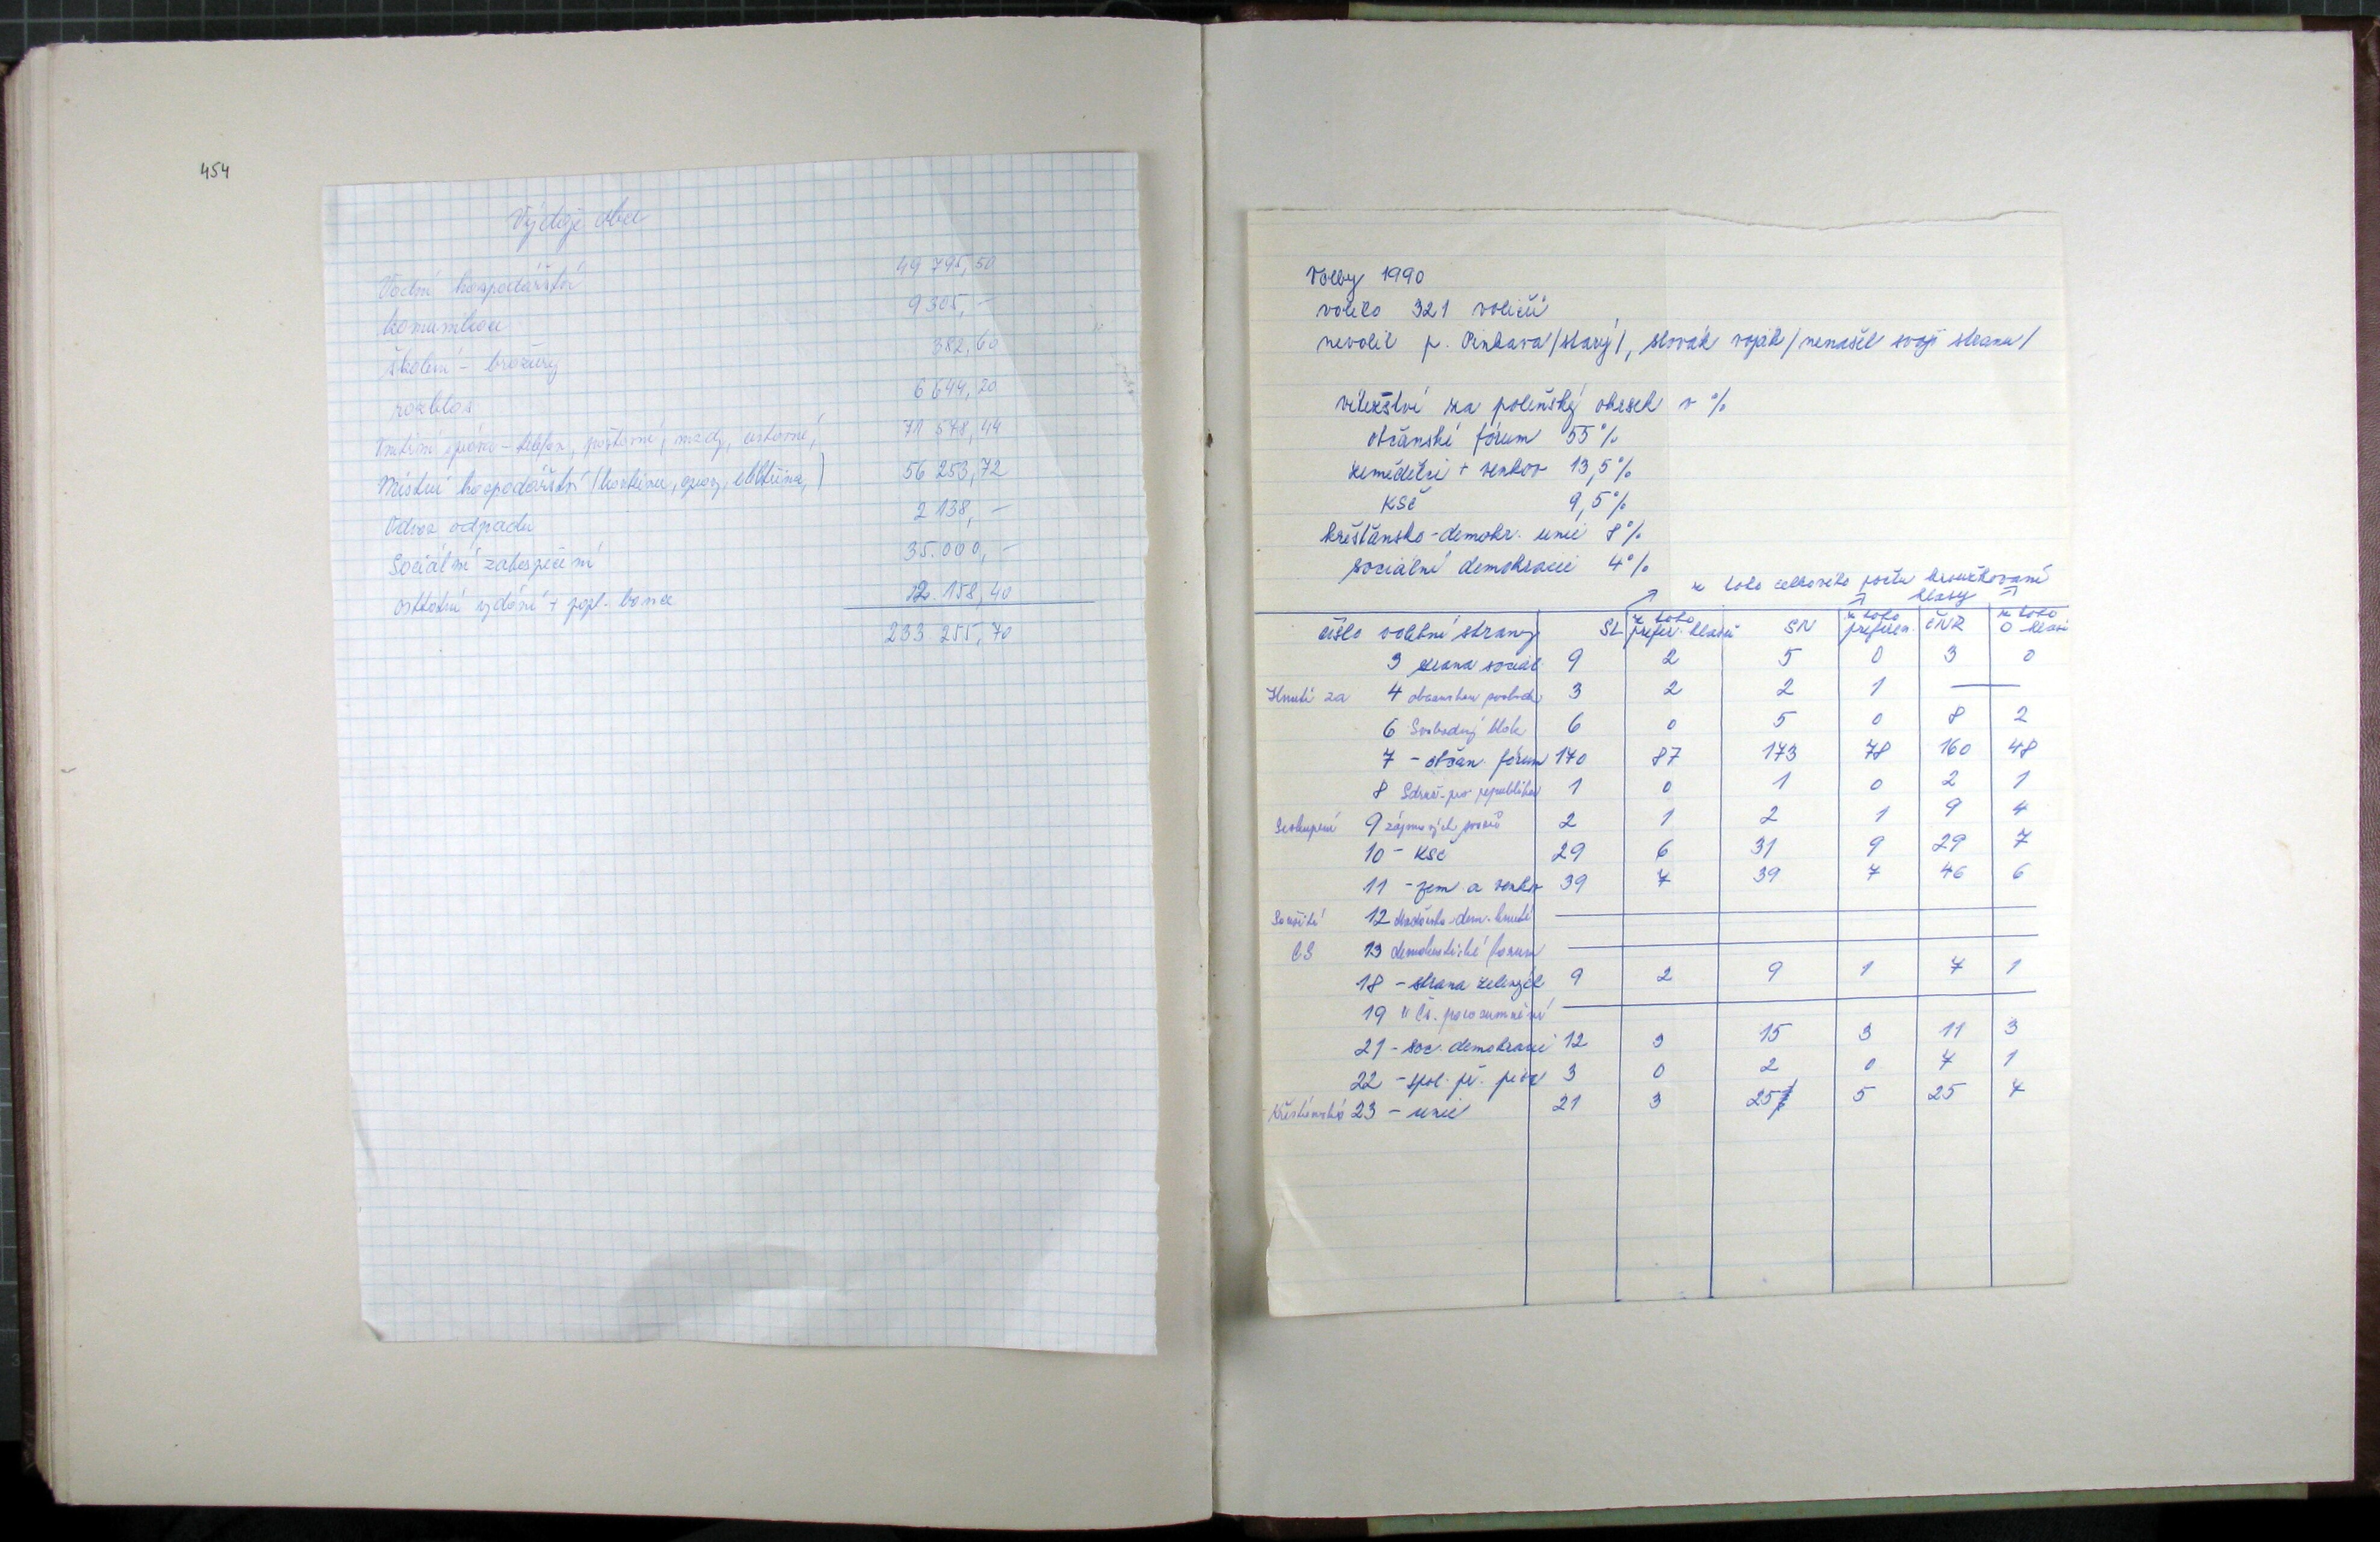 454
Výdaje obce
Vodní hospodářství 49 795,50
komunikace 9 305,–
školení – brožury 382,60
rozhlas 6 644,20
Vnitřní správa – telefon, poštovné, mzdy, cestovné, 71 578,44
Místní hospodářství (kotelna, opravy, elektřina,) 56 253,72
Odvoz odpadu 2 138,–
Sociální zabezpečení 35.000,–
ostatní vydání + popl. banka 2.158,40
233 255,70
Volby 1990
volilo 321 voličů
nevolil p. Pinkava /starý/, slovák voják /nenašel svoji stranu/
vítězství za polenský okrsek v %
občanské fórum 55%
zemědělci + venkov 13,5%
KSČ 9,5%
křesťansko-demokr. unie 8%
sociální demokracie 4%
z toho celkového počtu kroužkované hlasy
číslo volební strany SL z toho prefer. hlasů SN z toho preferen. ČNR z toho hlasů
3 strana sociál. 9 2 5 0 3 0
Hnutí za 4 občanskou svobodu 3 2 2 1 —
6 Svobodný blok 6 0 5 0 8 2
7 – občan. fórum 170 87 173 78 160 48
8 Sdruž. pro republiku 1 0 1 0 2 1
Seskupení 9 zájmových svazů 2 1 2 1 9 4
10 – KSČ 29 6 31 9 29 7
11 – zem. a venkov 39 7 39 7 46 6
Soužití 12 Maďarsko-dem. hnutí —
ČS 13 demokratické forum —
18 – strana zelených 9 2 9 1 7 1
19 " Čs. porozumnění —
21 – soc. demokracie 12 3 15 3 11 3
22 – spol. př. piva 3 0 2 0 7 1
Křesťanská 23 – unie 21 3 25 5 25 4